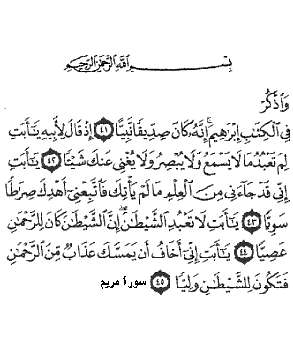 بِسْمِ اللَّهِ الرَّحْمَٰنِ الرَّحِيمِ
وَاذْكُرْ
فِي الْكِتَابِ إِبْرَاهِيمَ ۚ إِنَّهُ كَانَ صِدِّيقًا نَّبِيًّا ﴿٤١﴾ إِذْ قَالَ لِأَبِيهِ يَا أَبَتِ
لِمَ تَعْبُدُ مَا لَا يَسْمَعُ وَلَا يُبْصِرُ وَلَا يُغْنِي عَنكَ شَيْئًا ﴿٤٢﴾ يَا أَبَتِ
إِنِّي قَدْ جَاءَنِي مِنَ الْعِلْمِ مَا لَمْ يَأْتِكَ فَاتَّبِعْنِي أَهْدِكَ صِرَاطًا
سَوِيًّا ﴿٤٣﴾ يَا أَبَتِ لَا تَعْبُدِ الشَّيْطَانَ ۖ إِنَّ الشَّيْطَانَ كَانَ لِلرَّحْمَٰنِ
عَصِيًّا ﴿٤٤﴾ يَا أَبَتِ إِنِّي أَخَافُ أَن يَمَسَّكَ عَذَابٌ مِّنَ الرَّحْمَٰنِ
فَتَكُونَ لِلشَّيْطَانِ وَلِيًّا ﴿٤٥﴾ سورة مريم